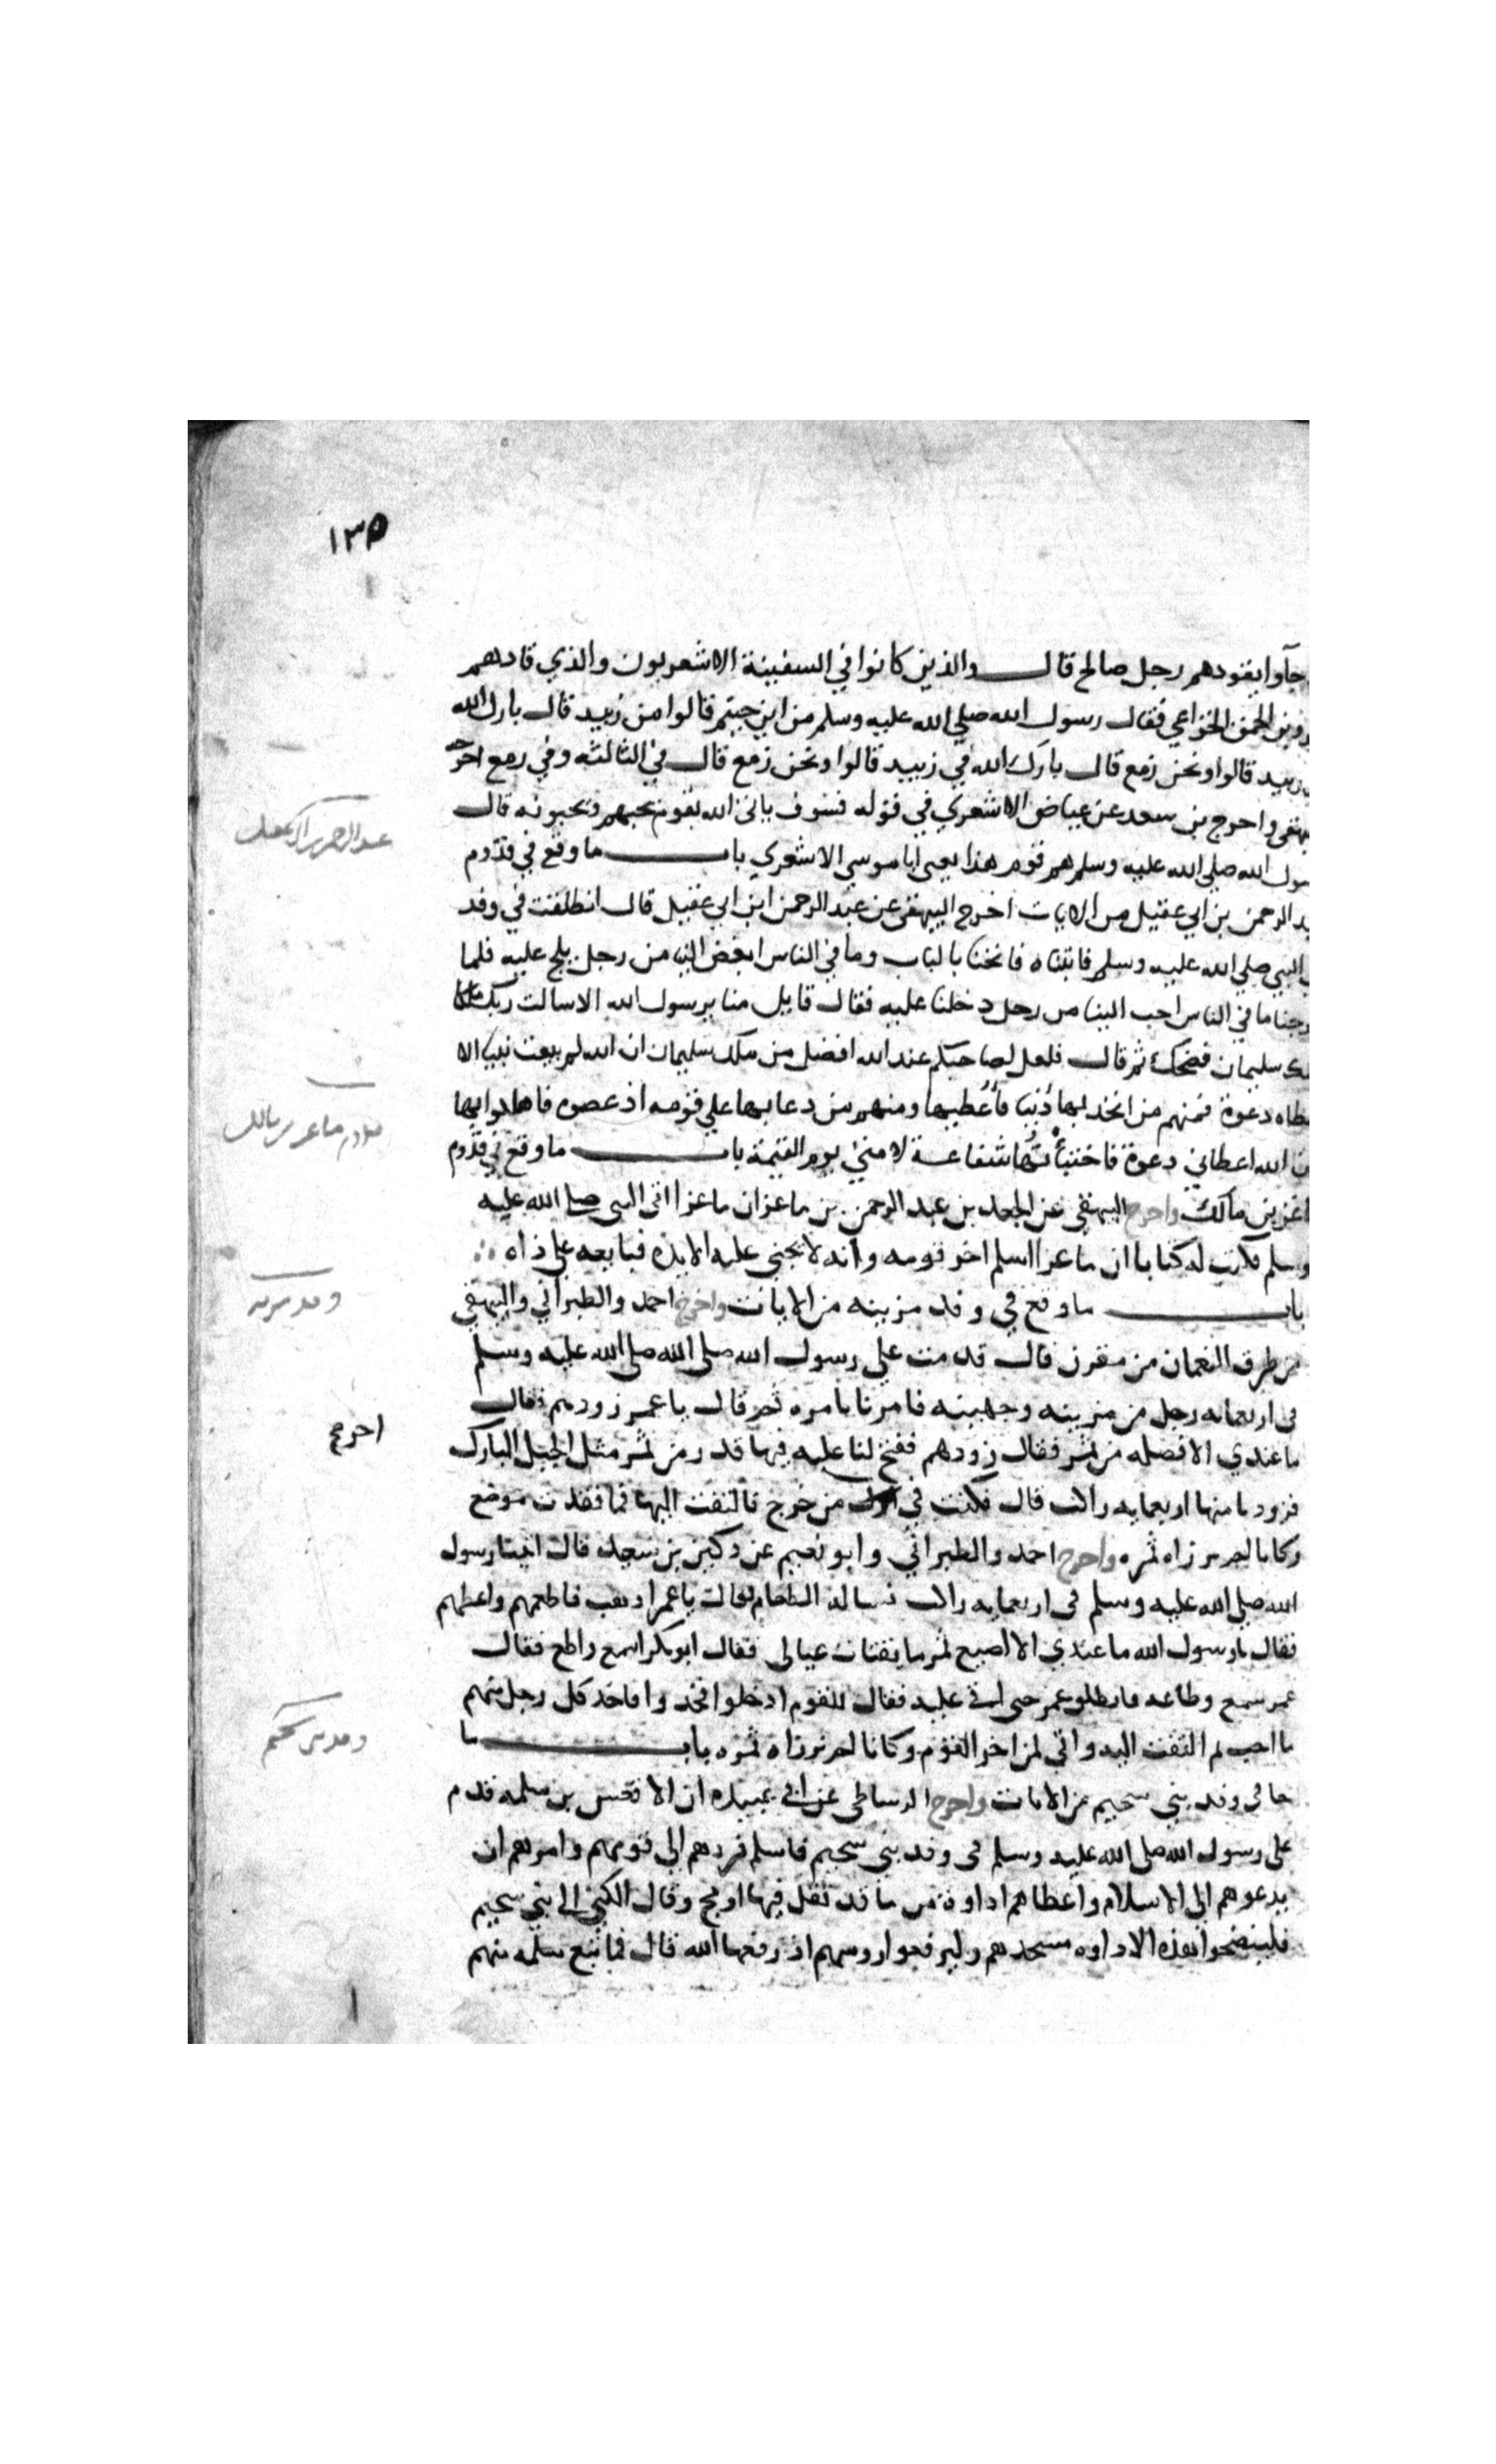 ١٣٥
جآوا يقودهم رجل صالح قال والذين كانوا في السفينة الاشعريون والذي قادهم
بن الحمق الخزاعي فقال رسول الله صلي الله عليه وسلم من اين جيتم قالوا من زبيد قال بارك الله
زبيد قالوا ونحن زمع قال بارك الله في زبيد قالوا ونحن زمع قال في الثالثه وفي رمع اخرجه
واخرج بن سعد عن عياض الاشعري في قوله فسوف ياتي الله بقوم يحبهم ويحبونه قال
الله صلي الله عليه وسلم هم قوم هذا يعني ابا موسي الاشعري باب ما وقع في قدوم
الرحمن بن ابي عقيل من الايات اخرج البيهقي عن عبد الرحمن ابن ابي عقيل قال انطلقت في وفد
النبي صلي الله عليه وسلم فاتيناه فانخنا بالباب وما في الناس ابغض الينا من رجل يلج عليه فلما
ما في الناس احب الينا من رجل دخلنا عليه فقال قايل منا يرسول الله الا سالت ربك ملكا
سليمان فضحك ثم قال فلعل لصاحبكم عند الله افضل من ملك سليمان ان الله لم يبعث نبيا الا
دعوة فمنهم من اتخذ بها دنيا فأعطيها ومنهم من دعا بها علي قومه اذ عصوه فاهلكوا بها
الله اعطاني دعوة فاختبأتها شفاعة لامتي يوم القيمة باب ما وقع في قدوم
بن مالك واخرج البيهقي عن الجعد بن عبد الرحمن بن ماعز ان ماعزا اتى النبي صلي الله عليه
وسلم فكتب له كتابا ان ماعزا اسلم اخر قومه وانه لا يجني عليه الا يده فبايعه علي ذاه
باب ما وقع في وفد مزينه من الايات واخرج احمد والطبراني والبيهقي
من طرق النعمان من مقرن قال قدمت علي رسول الله صلى الله صلى الله عليه وسلم
في اربعمايه رجل من مزينه وجهينه فامرنا بامره ثم قال يا عمر زودهم فقال
ما عندي الا فضله من تمر فقال زودهم ففتح لنا عليه فيها قدر من تمر مثل الجبل البارك
فزودنا منها اربعمايه راكب قال فكنت في من خرج فالتفت اليها فما فقدت موضع
وكانا لم نرزاه تمره واخرج احمد والطبراني وابو نعيم عن دكين بن سعيد قال اتينا رسول
الله صلي الله عليه وسلم في اربعمايه راكب نساله الطعام فقال يا عمر اذهب فاطعمهم واعطهم
فقال يا رسول الله ما عندي الا اصبع تمر ما يقتات عيالي فقال ابو بكر اسمع واطع فقال
عمر سمع وطاعه فانطلق عمر حتى اتى عليه فقال للقوم ادخلوا فخذوا فاخذ كل رجل منهم
ما احب ثم التفت اليه واني لمن اخر القوم وكانا لم نرزاه تمره باب ما
جا في وفد بني سحيم من الايات واخرج الرشاطي عن ابي عبيده ان الاقعس بن سلمه قدم
علي رسول الله صلي الله عليه وسلم في وفد بني سحيم فاسلم فردهم الي قومهم وامرهم ان
يدعوهم الي الاسلام واعطاهم اداوة من ما قد تفل فيها او مج وقال الكبي الي بني سحيم
فلينضحوا بهذه الاداوه مسجدهم وليرفعوا روسهم اذ رفعها الله قال فما تبع سلمه منهم
قدوم ماعز بن مالك
وفد مزينه
اخرج
وفد بني سحيم